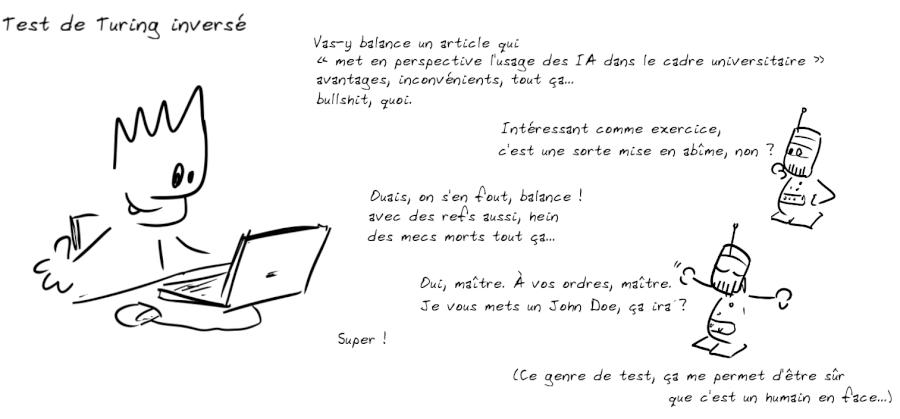 Test de Turing inversé
Vas-y balance un article qui
« met en perspective l'usage des IA dans le cadre universitaire »
avantages, inconvénients, tout ça...
bullshit, quoi.
Intéressant comme exercice,
c'est une sorte mise en abîme, non ?
Ouais, on s'en fout, balance !
avec des refs aussi, hein
des mecs morts tout ça...
Oui, maître. À vos ordres, maître.
Je vous mets un John Doe, ça ira ?
Super !
(Ce genre de test, ça me permet d'être sûr
que c'est un humain en face...)